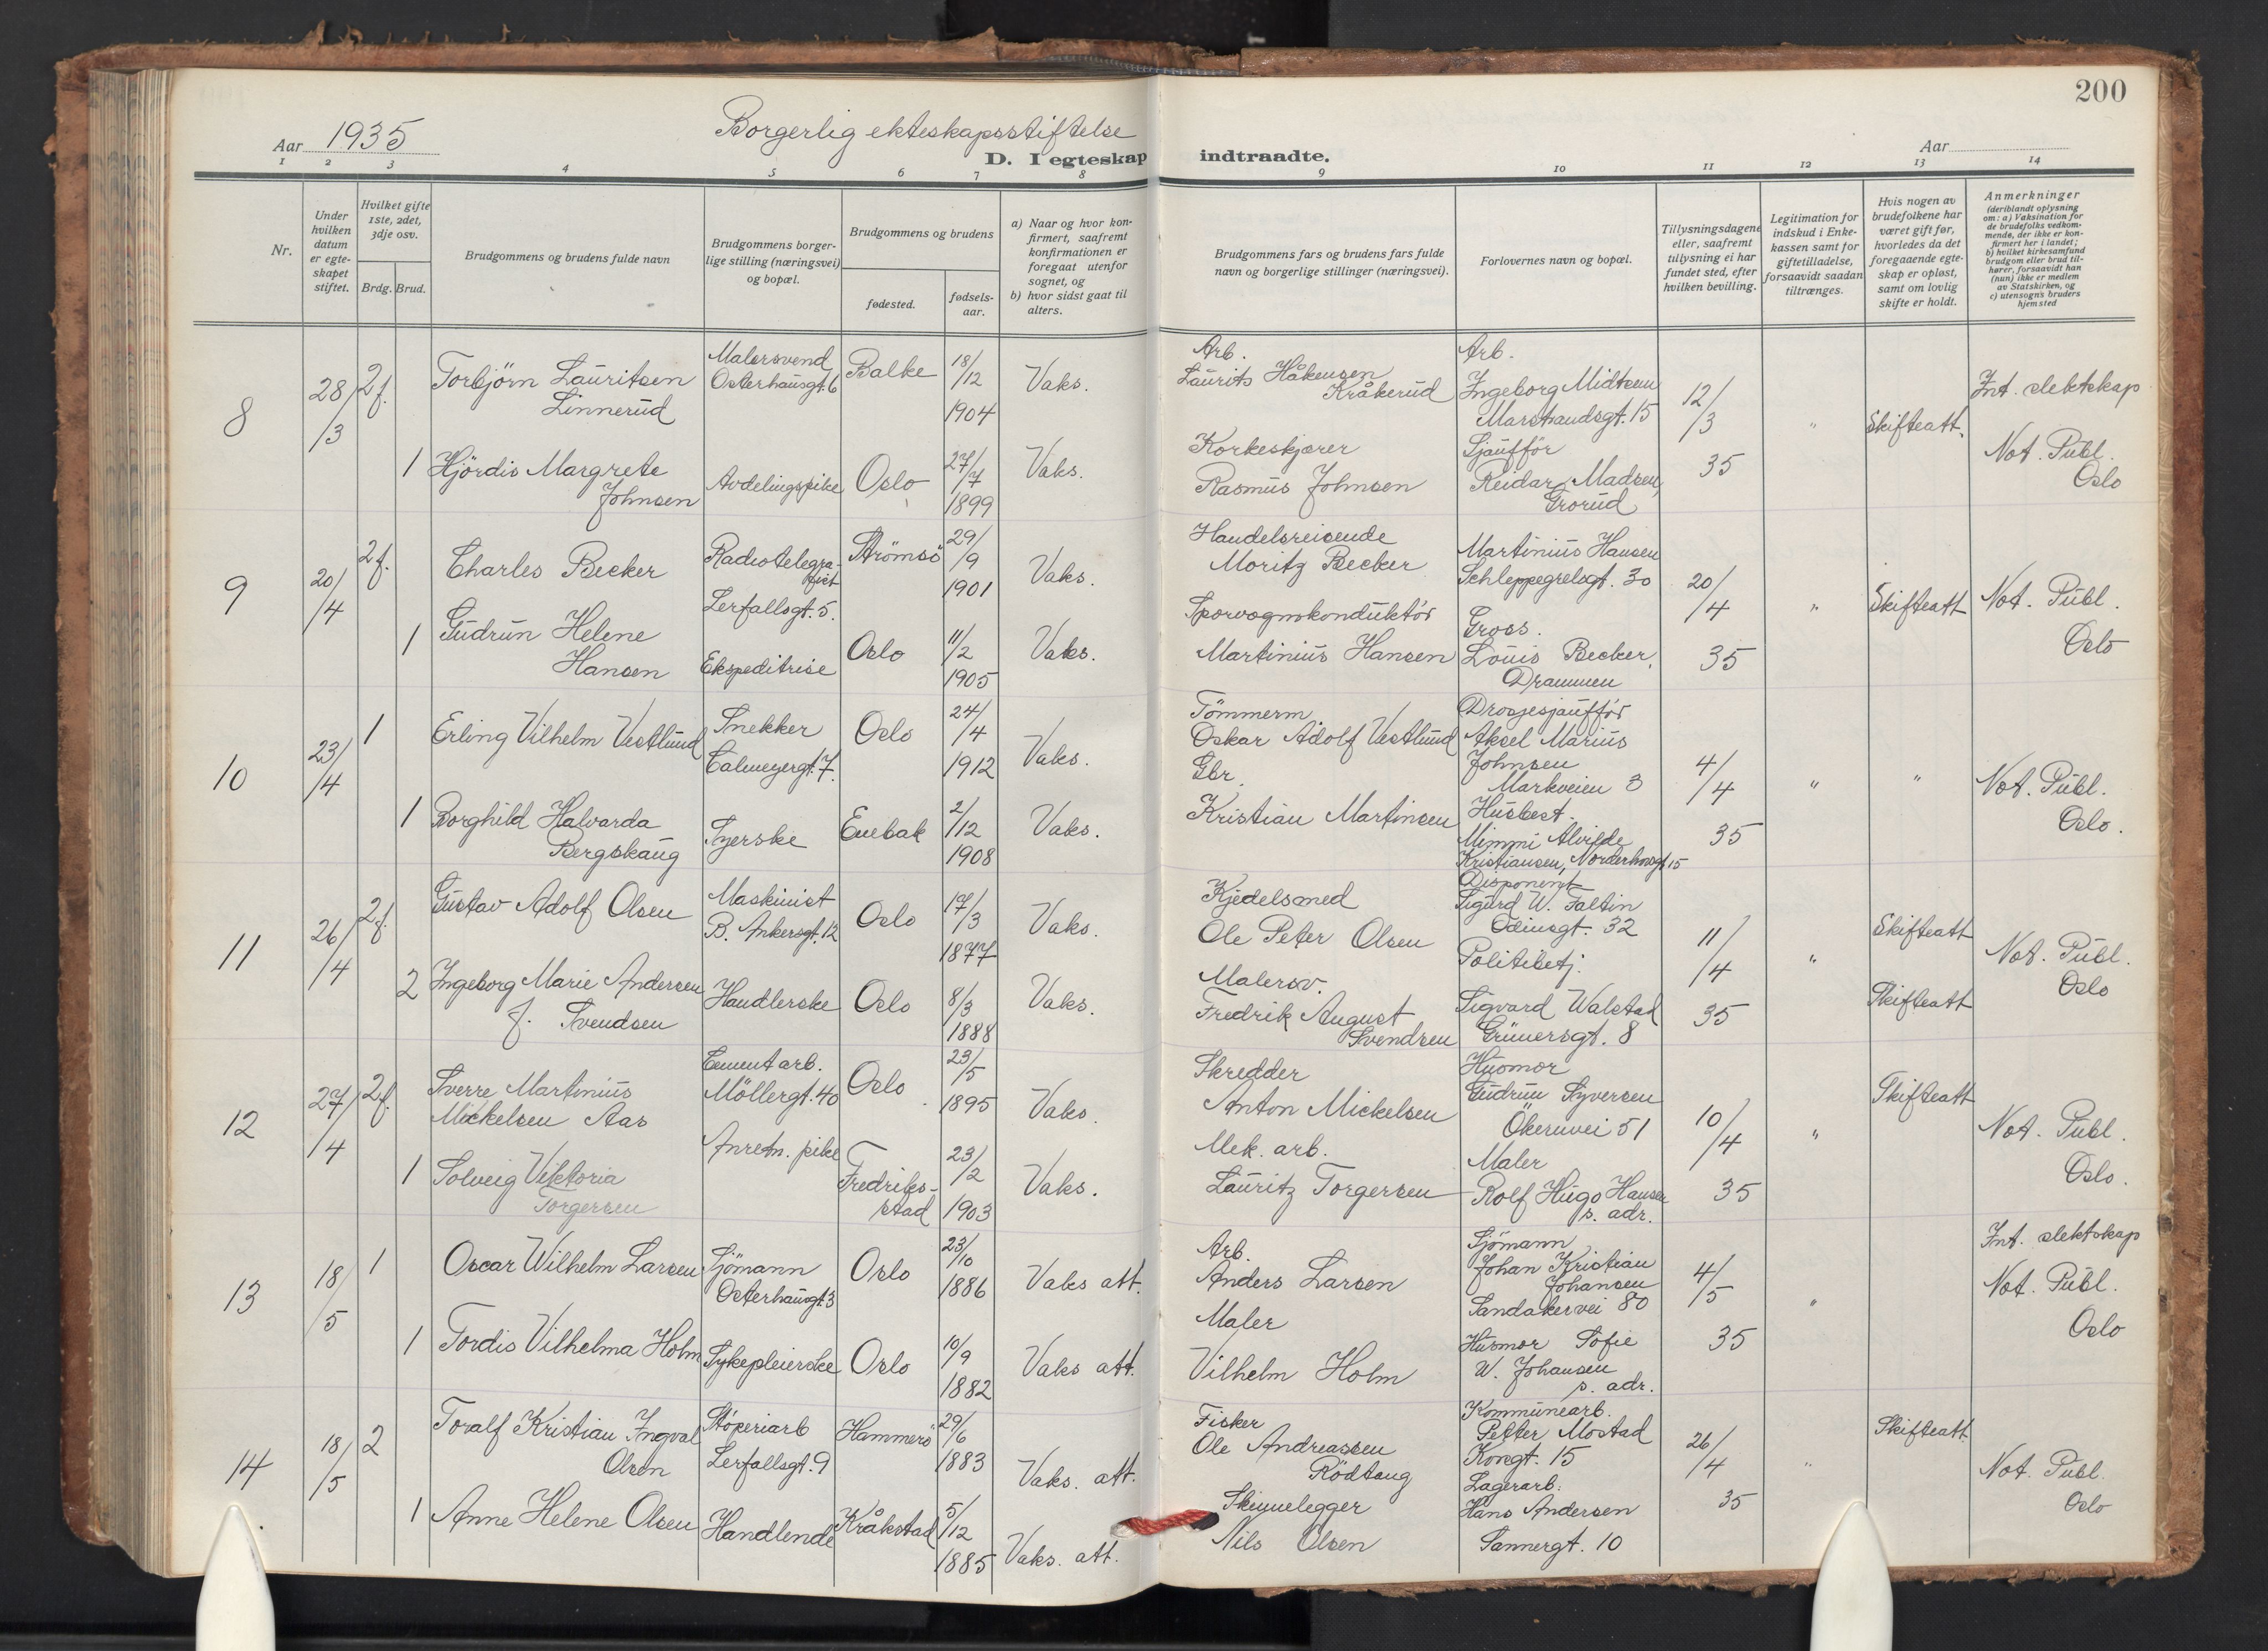 200
Aar 1935
Borgerlig ekteskapsstiftelse
D. I egteskap indtraadte.
Aar
1 2 3 4 5 6 7 8 9 10 11 12 13 14
Nr.
Under hvilken datum er egteskapet stiftet.
Hvilket gifte 1ste, 2det, 3dje osv.
Brdg. Brud.
Brudgommens og brudens fulde navn
Brudgommens borgerlige stilling (næringsvei) og bopæl.
Brudgommens og brudens
fødested.
fødselsaar.
a) Naar og hvor konfirmert, saafremt konfirmationen er foregaat utenfor sognet, og
b) hvor sidst gaat til alters.
Brudgommens fars og brudens fars fulde navn og borgerlige stillinger (næringsvei).
Forlovernes navn og bopæl.
Tillysningsdagene eller, saafremt tillysning ei har fundet sted, efter hvilken bevilling.
Legitimation for indskud i Enkekassen samt for giftetilladelse, forsaavidt saadan tiltrænges.
Hvis nogen av brudefolkene har været gift før, hvorledes da det foregaaende egteskap er opløst, samt om lovlig skifte er holdt.
Anmerkninger
(deriblandt oplysning om: a) Vaksination for de brudefolks vedkommende, der ikke er konfirmert her i landet; b) hvilket kirkesamfund brudgom eller brud tilhører, forsaavidt han (hun) ikke er medlem av Statskirken, og c) utensogn's bruders hjemsted
8
28/3
2f.
Torbjörn Lauritsen
Linnerud
Malersvend
Osterhausgt. 6
Balke
18/12
1904
Vaks.
Arb.
Laurits Håkensen
Kråkerud
Arb.
Ingeborg Midtsem
Marstrandsgt. 15
12/3
35
"
Skifteatt.
Int. slektskap
Not. Publ.
Oslo
1
Hjördis Margrete
Johnsen
Avdelingspike
Oslo
27/7
1899
Vaks.
Korkeskjærer
Rasmus Johnsen
Sjaufför
Reidar Madsen,
Grorud
9
20/4
2f.
Charles Becker
Radiotelegra-
fist
Lerfallsgt. 5.
Strömsö
29/9
1901
Vaks.
Handelsreisende
Moritz Becker
Martinius Hansen
Schleppegrelsgt. 30
20/4
35
"
Skifteatt
Not. Publ.
Oslo
1
Gudrun Helene
Hansen
Ekspeditrise
Oslo
11/2
1905
Vaks.
Sporvognskonduktör
Martinius Hansen
Gross.
Louis Becker,
Drammen
10
23/4
1
Erling Vilhelm Vestlund
Snekker
Calmeyergt. 7.
Oslo
24/4
1912
Vaks.
Tömmerm
Oskar Adolf Vestlund
Drosjesjaufför
Aksel Marius
Johnsen
Markveien 3
4/4
35
"
"
Not. Publ.
Oslo.
1
Borghild Halvarda
Bergskaug
Syerske
Enebak
2/12
1908
Vaks.
Gbr.
Kristian Martinsen
Husbest.
Mimmi Alvilde
Kristiansen, Norderhovgt 15
11
26/4
2f.
Gustav Adolf Olsen
Maskinist
B. Ankersgt. 12
Oslo
17/3
1877
Vaks.
Kjedelsmed
Ole Peter Olsen
Disponent
Sigurd W. Faltin
Odinsgt. 32
11/4
35
"
Skifteatt
Skifteatt
Not. Publ.
Oslo
2
Ingeborg Marie Andersen
f. Svendsen
Handlerske
Oslo
8/3
1888
Vaks.
Malersv.
Fredrik August
Svendsen
Politibetj.
Sigvard Walstad
Grünersgt. 8
12
27/4
2f.
Sverre Martinius
Mickelsen Aas
Cement arb.
Möllergt. 40
Oslo
23/5
1895
Vaks.
Skredder
Anton Mickelsen
Husmor
Gudrun Syversen
Ökernvei 51
10/4
35
"
Skifteatt
Not. Publ.
Oslo.
1
Solveig Viktoria
Torgersen
Anretn. pike
Fredriks-
stad
23/2
1903
Vaks.
Mek. arb.
Lauritz Torgersen
Maler
Rolf Hugo Hansen
s. adr.
13
18/5
1
Oscar Wilhelm Larsen
Sjömann
Osterhausgt. 3
Oslo
23/10
1886
Vaks att.
Arb.
Anders Larsen
Sjömann
Johan Kristian
Johansen
Sandakervei 80
4/5
35
"
Int. slektskap
Not. Publ.
Oslo
1
Tordis Vilhelma Holm
Sykepleierske
Oslo
10/9
1882
Vaks att.
Maler
Vilhelm Holm
Husmor Sofie
W. Johansen
s. adr.
14
18/5
2
Toralf Kristian Ingval
Olsen
Stóperiarb
Lerfallsgt. 9
Hammerö
29/6
1883
Vaks. att.
Fisker
Ole Andreassen
Rödtang
Kommunearb.
Petter Mostad
Kongt. 15
26/4
35
"
Skifteatt.
Not. Publ.
Oslo
1
Anne Helene Olsen
Handlende
Kråkstad
5/12
1885
Vaks. att.
Skinnelegger
Nils Olsen
Lagerarb.
Hans Andersen
Sannergt. 10